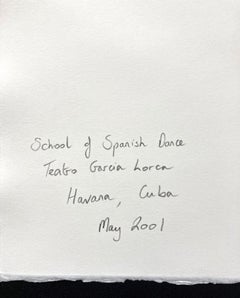 School of Spanish Dance
Teatro Garcia Lorca
Havana, Cuba
May 2001